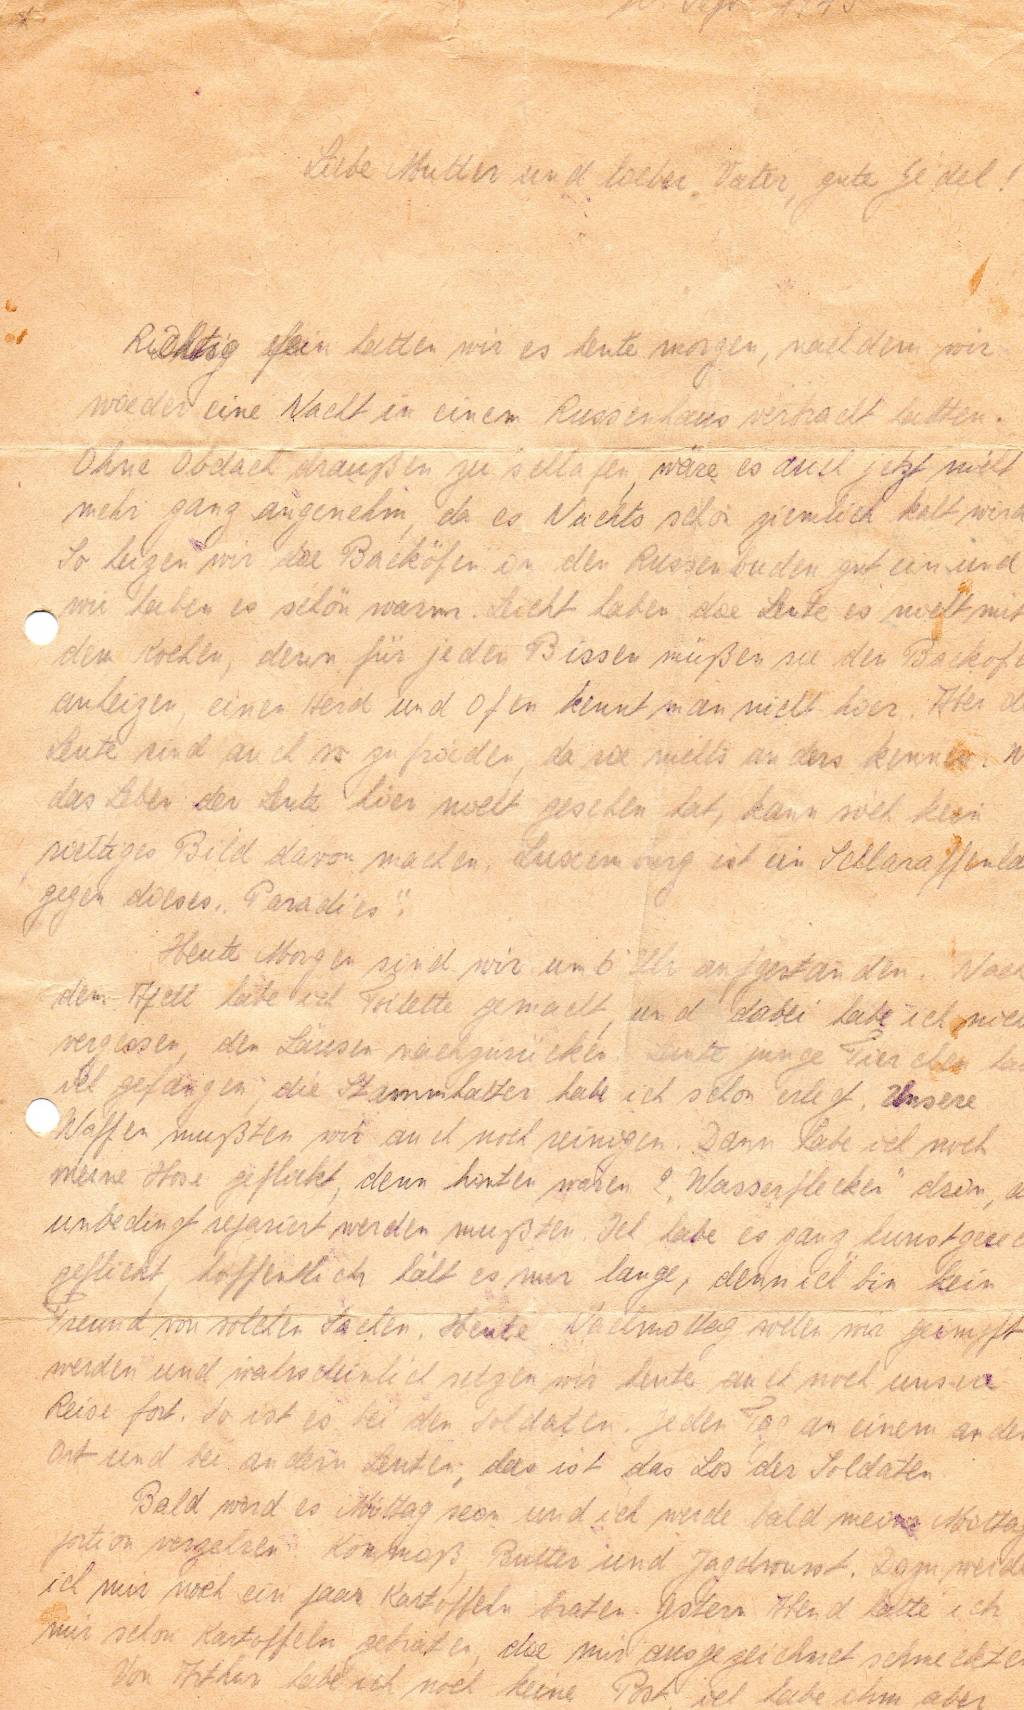 10. Sept. 1943
Liebe Mutter und lieber Vater, gute Jedel!
Richtig fein hatten wir es heute morgen, nachdem wir
wieder eine Nacht in einem Russenhaus verbracht hatten.
Ohne Obdach draußen zu schlafen, wäre es auch jetzt nicht
mehr ganz angenehm, da es Nachts schon ziemlich kalt wird
So heizen wir die Backöfen in den Russenbuden gut ein und
wir haben es schön warm. Leicht haben die Leute es nicht mit
dem Kochen, denn für jeden Bissen müßen sie den Backofe
anheizen, einen Herd und Ofen kennt man nicht hier. Aber d
Leute sind auch so zufrieden, da sie nichts anders kennen. W
das Leben der Leute hier nicht gesehen hat, kann sich kein
richtiges Bild davon machen. Luxemburg ist ein Schlaraffenla
gegen dieses „Paradies".
Heute Morgen sind wir um 6 Uhr aufgestanden. Nach
dem habe ich Toilette gemacht, und dabei habe ich nich
vergessen, den Läusen nachzurücken. Leute junge Tierchen ha
ich gefangen, die Stammhalter habe ich schon erlegt. Unsere
Waffen mußten wir auch noch reinigen. Dann habe ich noch
meine Hose geflickt, denn hinten waren 2 „Wasserflecken" drin, d
unbedingt repariert werden mußten. Ich habe es ganz kunstgerech
geflickt, hoffentlich hält es nur lange, denn ich bin kein
Freund von solchen Sachen. Heute Nachmittag sollen wir geimpft
werden und wahrscheinlich setzen wir heute auch noch unsere
Reise fort. So ist es bei den Soldaten. Jeden Tag an einem ander
Ort und bei andern Leuten, das ist das Los der Soldaten.
Bald wird es Mittag sein und ich werde bald meine Mittag
portion verzehren. Kommiß, Butter und Jagdwurst. Dann werde
ich mir noch ein paar Kartoffeln braten. Gestern Abend hatte ich
mir schon Kartoffeln gebraten, die mir ausgezeichnet schmeckten
Von Arthur habe ich noch keine Post, ich habe ihm aber